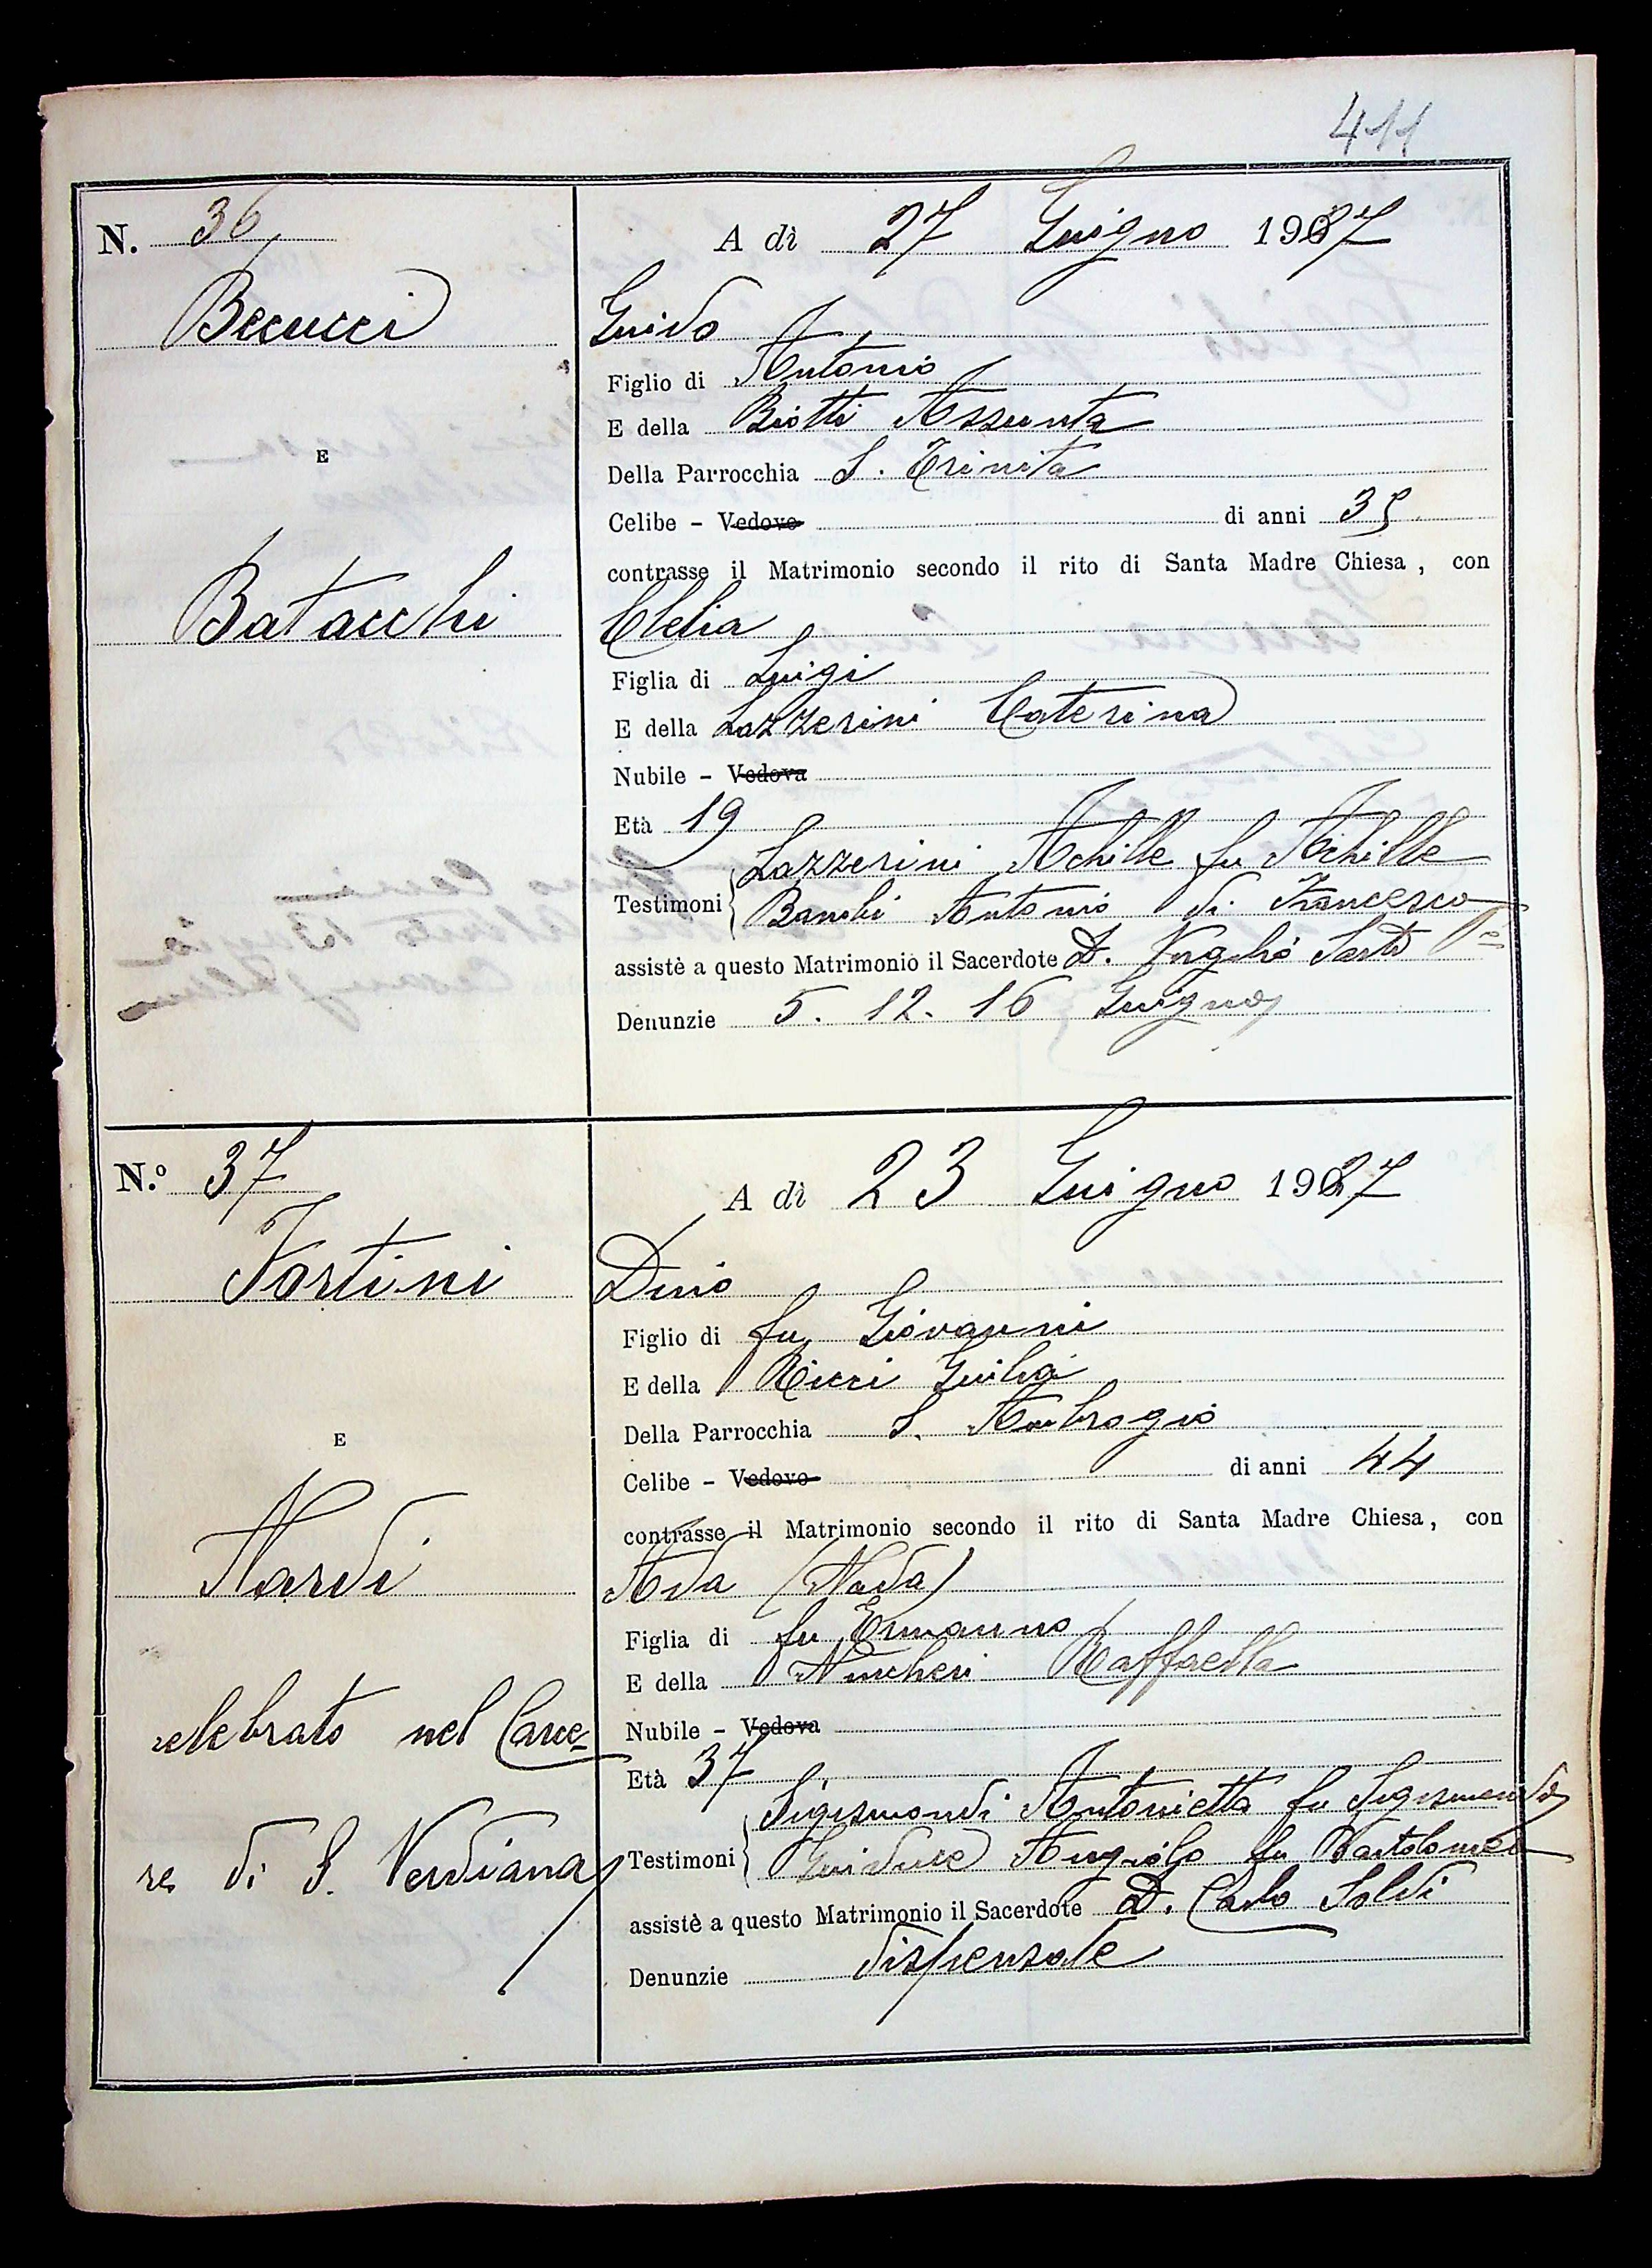 411
N. 36 A dì 27 Giugno 1927
Becucci Guido
Figlio di Antonio
E della Biotti Assunta
E
Della Parrocchia S. Trinita
Celibe - Vedovo di anni 35
contrasse il Matrimonio secondo il rito di Santa Madre Chiesa, con
Batacchi Clelia
Figlia di Luigi
E della Lazzerini Caterina
Nubile - Vedova
Età 19
Lazzerini Achille fu Achille
Testimoni Bambi Antonio di Francesco
assistè a questo Matrimonio il Sacerdote D. Virgilio Sarti
Denunzie 5. 12. 16 Giugno
N.º 37 A dì 23 Giugno 1927
Fortini Dino
Figlio di fu Giovanni
E della Ricci Giulia
Della Parrocchia S. Ambrogio
E
Celibe - Vedovo di anni 44
contrasse il Matrimonio secondo il rito di Santa Madre Chiesa, con
Nardi Ada (Nada)
Figlia di fu Ermanno
E della Nincheri Raffaella
celebrato nel Carce- Nubile - Vedova
Età 37
Sigismondi Antonietta fu Sigismondo
re di S. Verdiana Testimoni Angiolo fu Bartolomeo
assistè a questo Matrimonio il Sacerdote D. Carlo Soldi
Denunzie dispensate